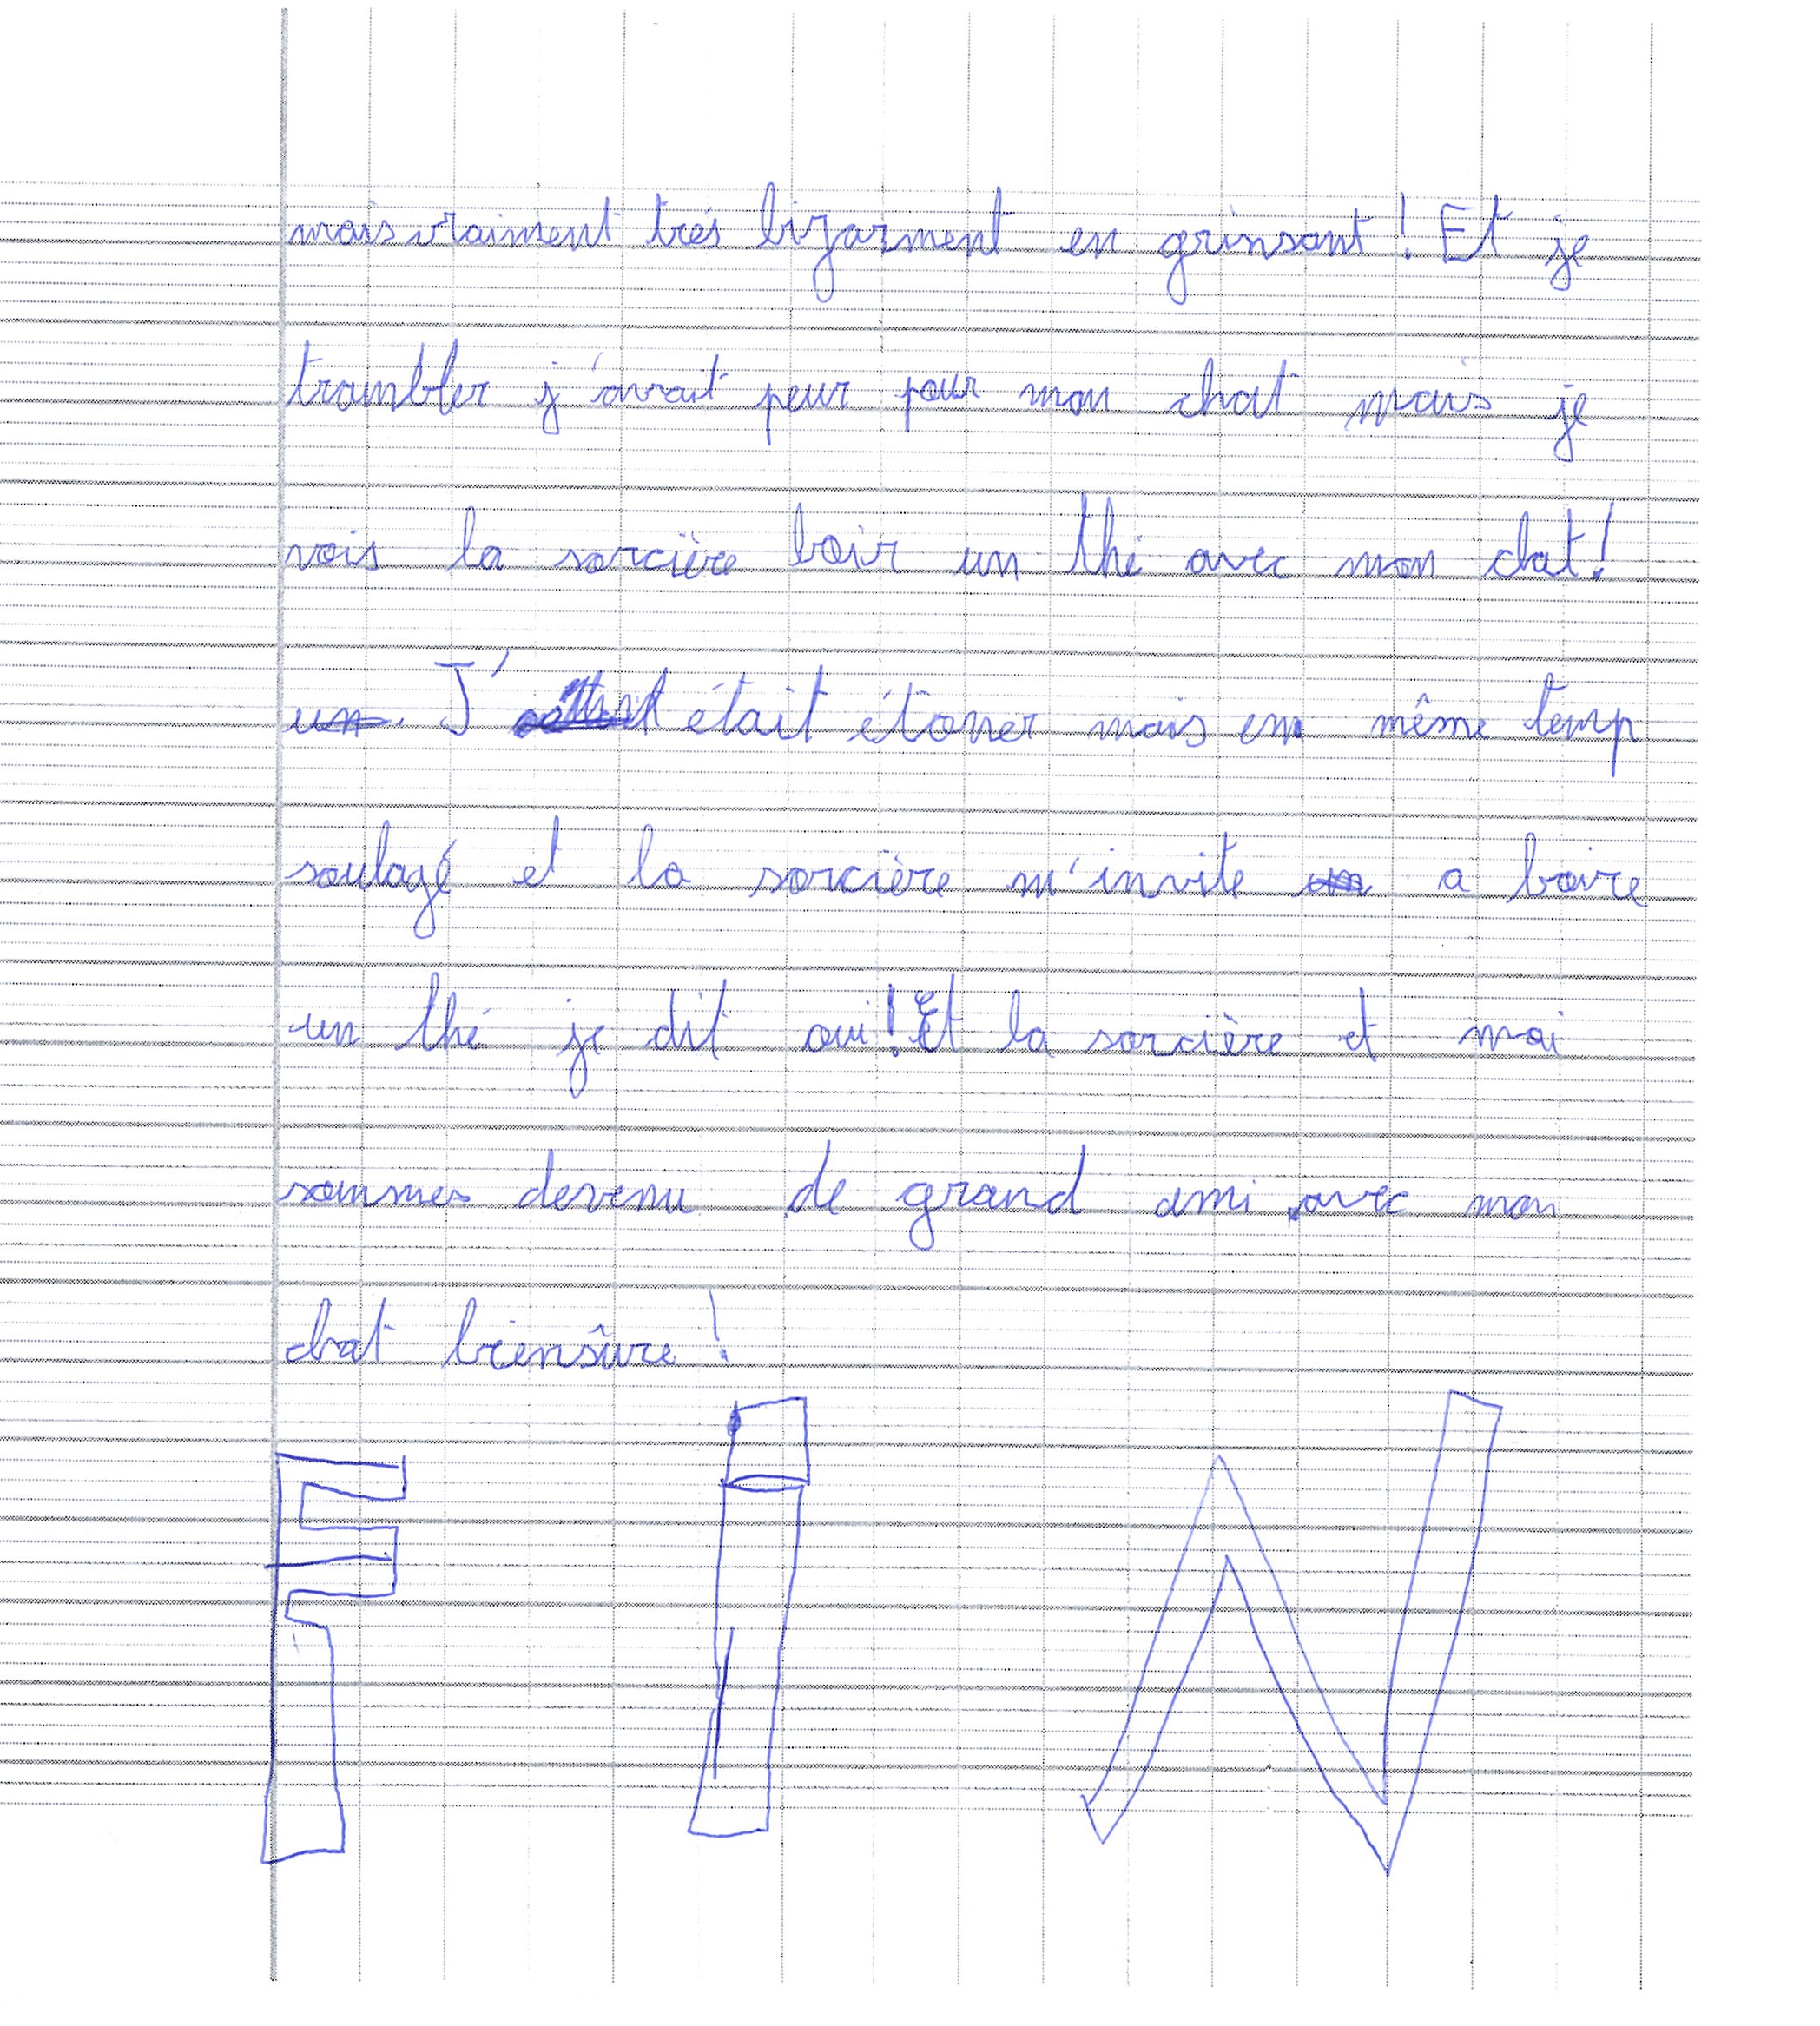 mais vraiment trés bizarment en grinsant ! Et je
trambler j'avait peur pour mon chat mais je
vois la sorcière boir un thé avec mon chat !
un. J' était étoner mais en même temp
soulagé et la sorcière m'invite un a boire
un thé je dit oui ! Et la sorcière et moi
sommes devenu de grand ami avec mon
chat biensûre !
FIN